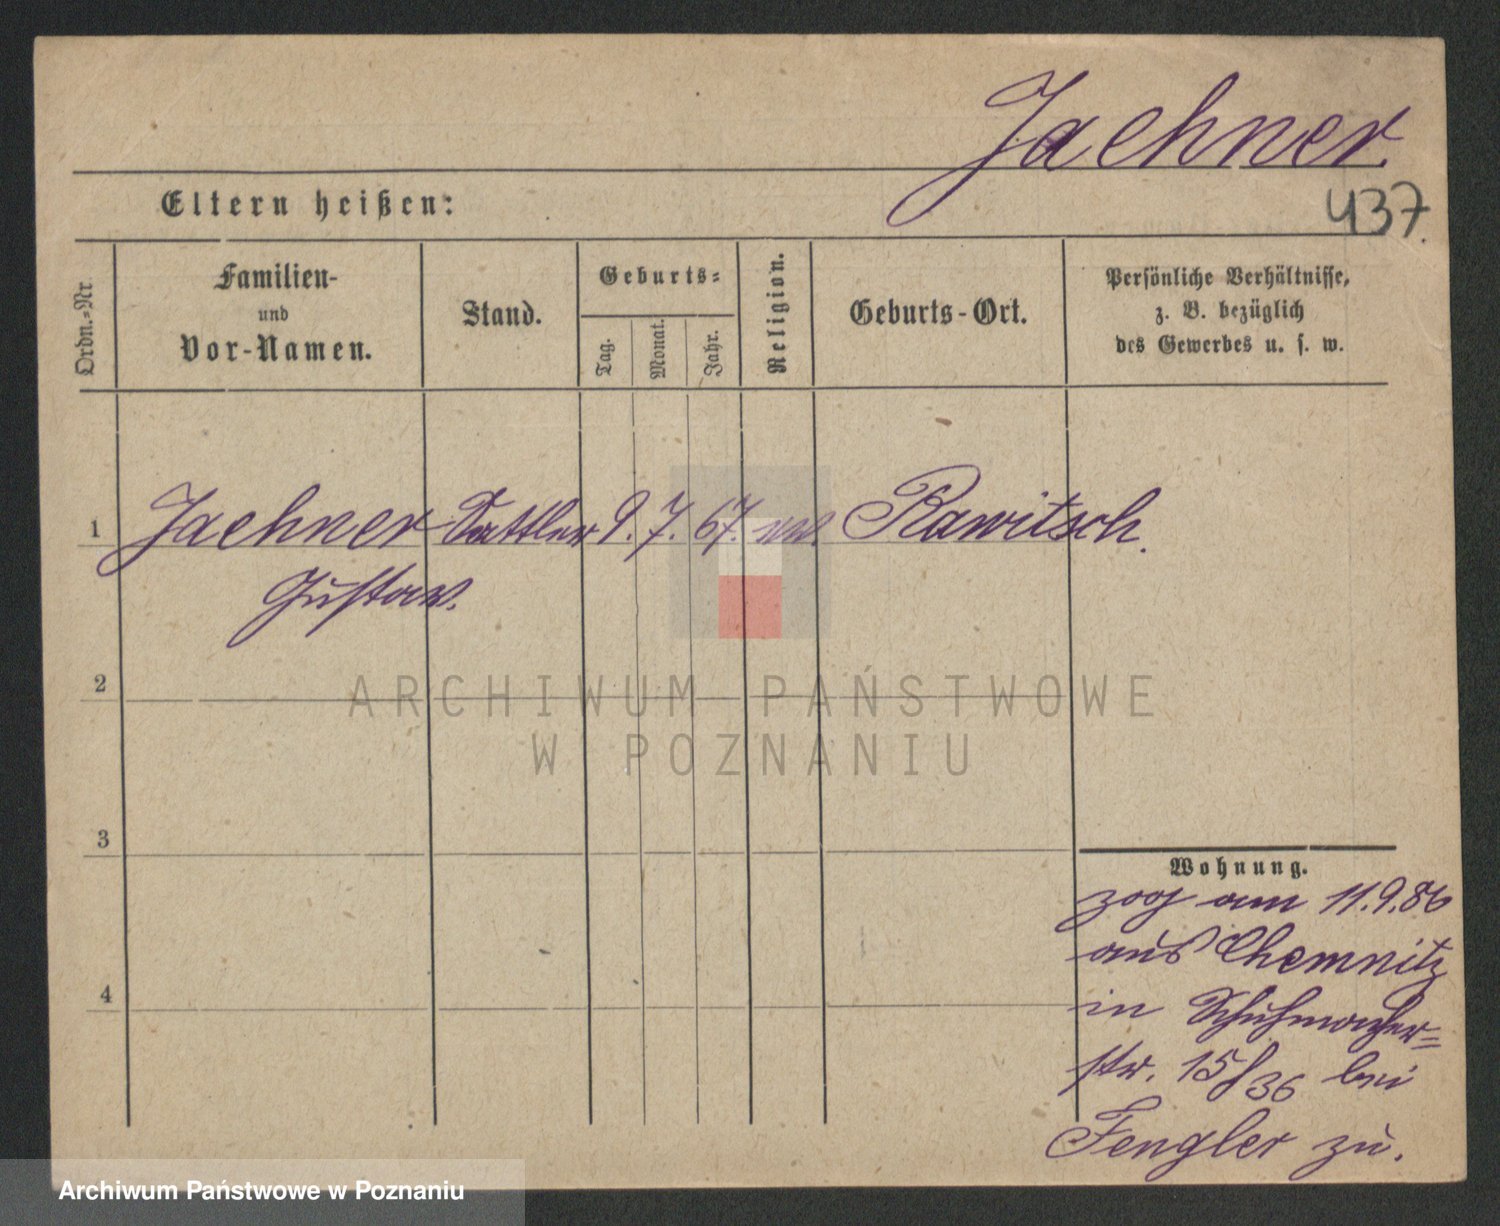 Jaehner
437.
Eltern heißen:
Ordn.-Nr.
Familien-
und
Vor-Namen.
Stand.
Geburts-
Tag.
Monat.
Jahr.
Religion.
Geburts-Ort.
Persönliche Verhältnisse,
z. B. bezüglich
des Gewerbes u. s. w.
1 Jaehner Sattler 9. 7. 67. ev. Rawitsch.
Gustav.
2
3
4
Wohnung.
zog am 11.9.86
aus Chemnitz
in Schuhmacher=
str. 15/36 bei
Fengler zu.
ARCHIWUM PAŃSTWOWE
W POZNANIU
Archiwum Państwowe w Poznaniu